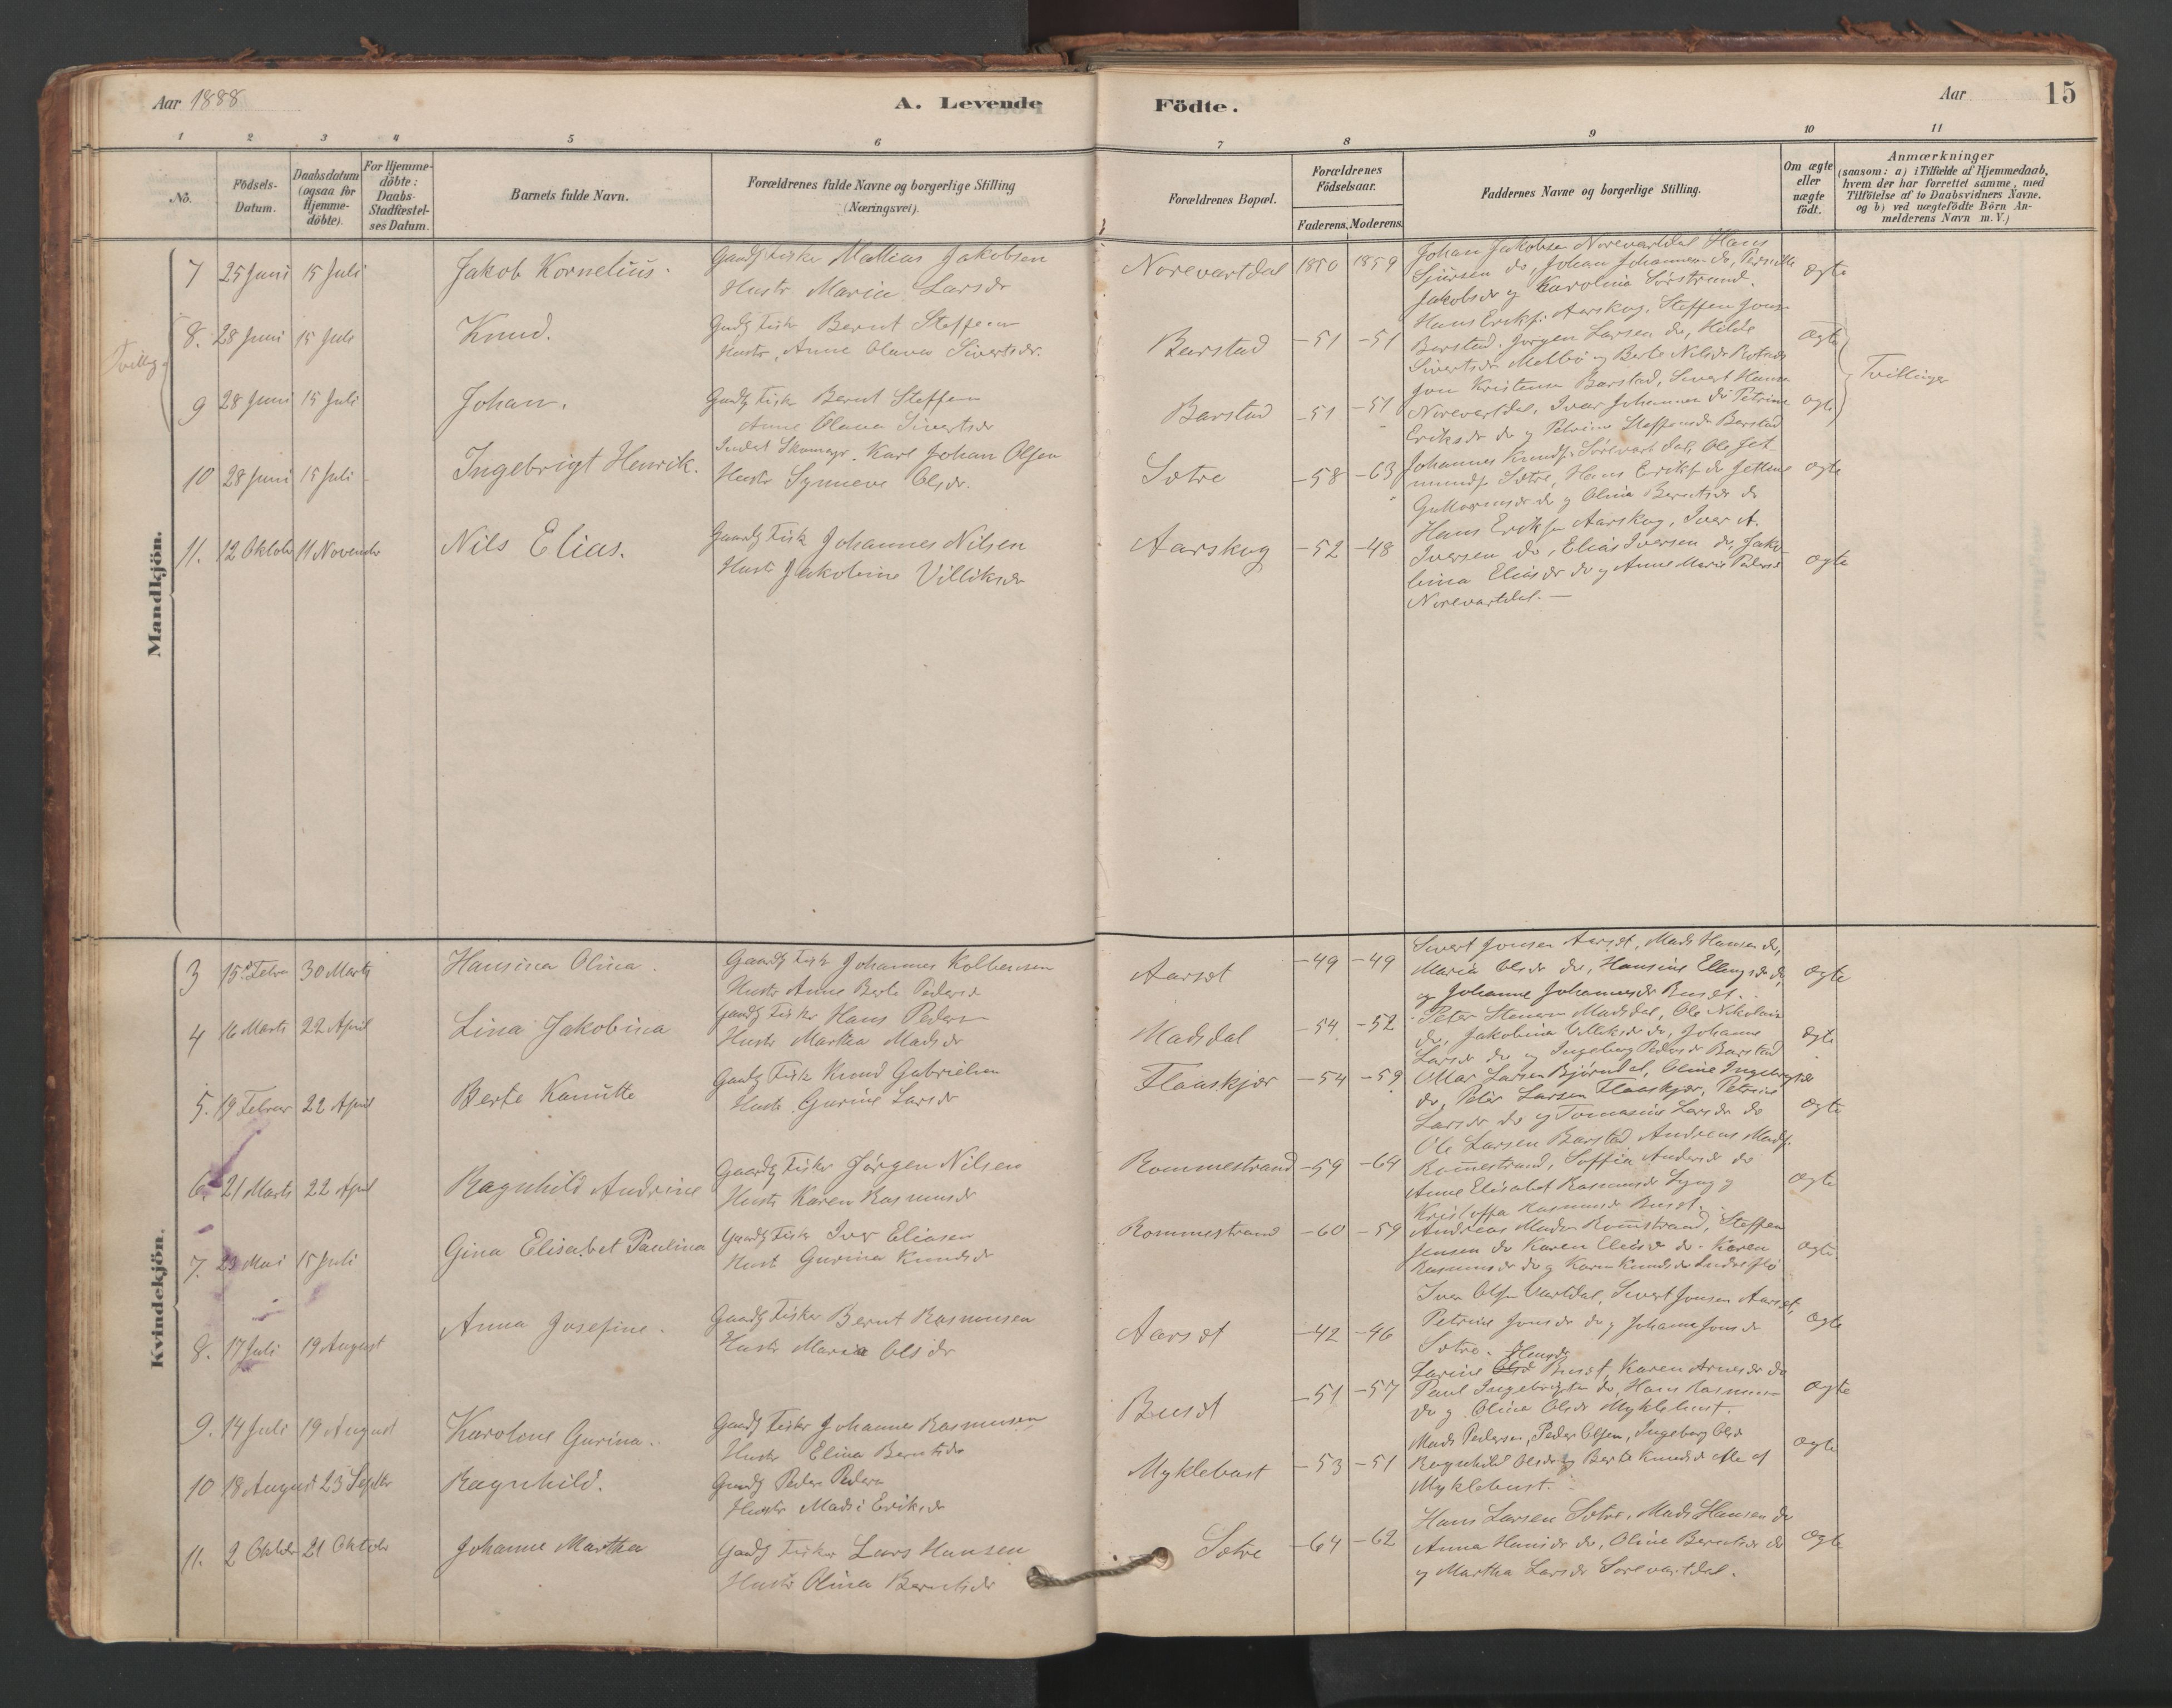 Aar 1888
A. Levende
Födte.
Aar
15
1 2 3 4 5 6 7 8 9 10 11
No.
Födsels-
Datum.
Daabsdatum
(ogsaa for
Hjemme-
döbte).
For Hjemme-
döbte:
Daabs-
Stadfæstel-
ses Datum.
Barnets fulde Navn.
Forældrenes fulde Navne og borgerlige Stilling
(Næringsvei).
Forældrenes Bopæl.
Forældrenes
Födselsaar.
Faderens. Moderens.
Faddernes Navne og borgerlige Stilling.
Om ægte
eller
uægte
födt.
Anmærkninger
(saasom: a) i Tilfælde af Hjemmedaab,
hvem der har forrettet samme, med
Tilföielse af to Daabsvidners Navne.
og b) ved uægtefödte Börn An-
melderens Navn m. V.)
Mandkjön.
7 25 Juni 15 Juli Jakob Kornelius.
Gaardb Fisker Mathias Jakobsen
Hustr Maria Larsdr
Norevartdal 1850 1859
Johan Jakobsen Norevartdal Hans
Sjursen do, Johan Johannesen do, Pernille
Jakobsdr og Karolina Sørstrand.
ægte
8. 28 Juni 15 Juli Knud.
Gaardb Fisk Bernt Steffensen
Hustr, Anne Olava Sivertsdr.
Barstad -51 -51
Hans Eriks. Aarskog, Steffen Jons
Barstad. Jørgen Larsen do, Hilde
Sivertsdr Melbø og Berte Nilsdr
ægte
Tvillinger
9 28 Juni 15 Juli Johan.
Gaardb Fisk Bernt Steffen
Anne Olava Sivertsdr
Barstad -51 -51
Jon Kristensen Barstad, Sivert Hansen
Norevartdal, Ivar Johannesen do Petrine
Eriksdr do og Petrine Steffensdr Barstad
ægte
10 28 Juni 15 Juli Ingebrigt Henrik.
Inderst Skomagr. Karl Johan Olsen
Hustr Synneve Olsdr.
Sætre -58 -63
Johannes Knuds. Sørevartdal, Ole Jet-
munds Sætre, Hans Eriks do Jetline
Guttormsdr do og Olina Berntsdr do
ægte
11. 12 Oktober 11 November Nils Elias.
Gaardb Fisk Johannes Nilsen
Hustr Jakobine Villiksdr
Aarskog -52 -48
Hans Eriksen Aarskog, Iver A.
Iversen do, Elias Iversen do, Jako-
bina Eliasdr do og Anne Marie Pedersd
Norevartdal.
ægte
Kvindekjön.
3 15 Febru 30 Marts Hansina Olina.
Gaardb Fisk Johannes Kolbensen
Hustr Anne Berte Pedersd
Aarset -49 -49
Sivert Jonsen Aarset, Mads Hansen do,
Maria Olsdr do, Hansine Ellingsdr do,
og Johanne Johannesdr Buset.
ægte
4 16 Marts 22 April Lina Jakobina
Gaardb Fisker Hans Pedersen
Hustr Martha Madsdr
Madsdal -54 -52
Peter Stenersen Madsdal, Ole Nikolaisen
do, Jakobina Villiksdr do, Johanne
Larsdr do og Ingeborg Pedersdr Barstad
ægte
5. 19 Februar 22 April Berte Kanutte
Gaardb Fisk Knud Gabrielsen
Hustr. Gurine Larsdr
Flaaskjær -54 -59
Olar Larsen Bjørndal, Oline Ingebrigtsdr
do, Peter Larsen Flaaskjær, Petrine
Larsdr do og Tomasine Larsdr do
ægte
6. 21 Marts 22 April Ragnhild Andrine
Gaardb Fisker Jørgen Nilsen
Hustr Karen Rasmusdr
Rommestrand -59 -64
Ole Larsen Barstad Andreas Mads.
Romestrand, Soffia Andersdr do
Anne Elisabet Rasmusdr Lyng og
Kristoffa Rasmusdr Buset.
ægte
7. 23 Mai 15 Juli Gina Elisabet Paulina
Gaardb Fisk Iver Eliasen
Hustr Gurina Knudsdr
Rommestrand -60 -59
Andreas Madsen Romestrand, Steffen
Jensen do Karen Eliasdr do. Karen
Rasmusdr do og Karen Knudsdr Indreflø
ægte
8. 17 Juli 19 August Anna Josefine.
Gaardb Fisker Bernt Rasmussen
Hustr Maria Olsdr
Aarset -42 -46
Iver Olsen Vartdal, Sivert Jonsen Aarset,
Petrine Jonsdr do og Johanne Jonsdr
Sætre.
ægte
9. 14 Juli 19 August Karolone Gurina.
Gaardb Fisker Johannes Rasmussen
Hustr Elina Berntsdr
Buset -51 -57
Larine Buset, Karen Arnesdr do
Paul Ingebrigtsen do, Hans Rasmussen
do og Olina Olsdr Myklebust.
ægte
10 18 August 23 Septbr Ragnhild.
Gaardb Peder Pedersen
Hustr Madsi Eriksdr
Myklebust -53 -51
Mads Pedersen, Peder Olsen, Ingeborg Olsd
Ragnhild Olsdr og Berte Knudsd alle af
Myklebust.
ægte
11. 2 Oktober 21 Oktobr Johanne Martha
Gaardb Fisker Lars Hansen
Hustr Olina Berntsdr
Sætre -64 -62
Hans Larsen Sætre, Mads Hansen do
Anna Hansdr do, Oline Berntsdr do
og Martha Larsdr Sørevartdal.
ægte